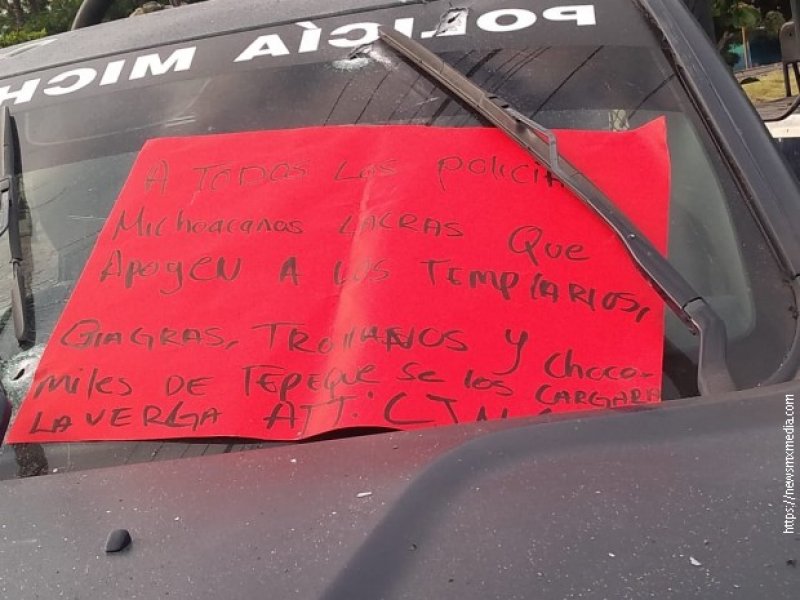 POLICÍA MICH
A TODOS LOS POLICIA
MICHOACANOS LACRAS QUE
APOGEN A LOS TEMPLARIOS,
GIAGRAS, TROLLANOS Y CHOCO-
MILES DE TEPEQUE SE LOS CARGARA
LA VERGA ATT: CJN
https://newsmxmedia.com